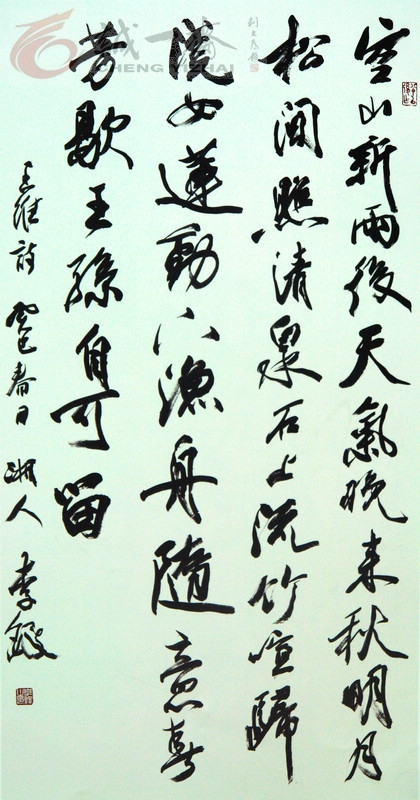 空山新雨後天氣晚来秋明月
松间照清泉石上流竹喧歸
浣女蓮動下漁舟隨意春
芳歇王孫自可留
王維詩 癸巳春日 湘人 李
CHENG YI ZHAI